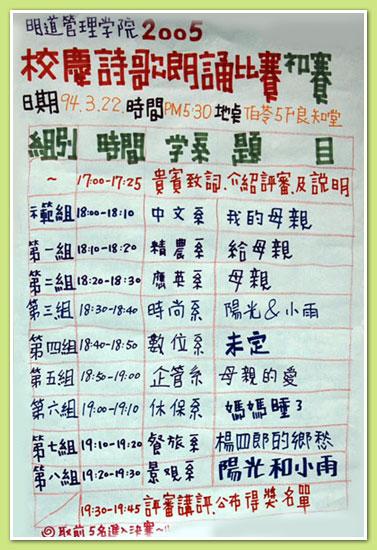 明道管理学院 2005
校慶詩歌朗誦比賽初賽
日期94.3.22.時間PM5:30 地点伯苓5F良知堂
組別 時間 学系 題目
~ 17:00-17:25 貴賓致詞.介紹評審.及說明
示範組 18:00-18:10 中文系 我的母親
第一組 18:10-18:20 精農系 給母親
第二組 18:20-18:30 應英系 母親
第三組 18:30-18:40 時尚系 陽光&小雨
第四組 18:40-18:50 數位系 未定
第五組 18:50-19:00 企管系 母親的愛
第六組 19:00-19:10 休保系 媽媽睡了
第七組 19:10-19:20 餐旅系 楊四郎的鄉愁
第八組 19:20-19:30 景觀系 陽光和小雨
19:30-19:45 評審講評.公布得獎名單
◎取前5名進入決賽~!!